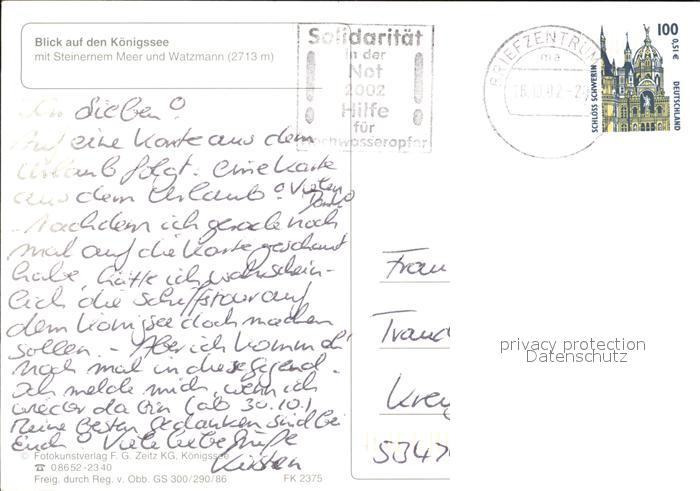 Blick auf den Königssee
mit Steinernem Meer und Watzmann (2713 m)
Solidarität
in der
Not
2002
Hilfe
für
Hochwasseropfer
BRIEFZENTRUM
ma
100
0,51€
SCHLOSS SCHWERIN
DEUTSCHLAND
Ihr Lieben!
Auf eine Karte aus dem
Urlaub folgt: eine Karte
aus dem Urlaub! Vielen
Dank!
Nachdem ich gerade noch
mal auf die Karte geschaut
habe, hätte ich wahrschein-
lich die Schiffstour auf
dem Königsee doch machen
sollen. - Aber ich komm ja
noch mal in diese Gegend.
Ich melde mich, wenn ich
wieder da bin (ab 30.10.)
Meine besten Gedanken sind bei
Euch! Viele liebe Grüße
Kirsten
Frau
Traud
Krey
5347
privacy protection
Datenschutz
© Fotokunstverlag F. G. Zeitz KG, Königssee
☎ 08652-2340
Freig. durch Reg. v. Obb. GS 300/290/86
FK 2375